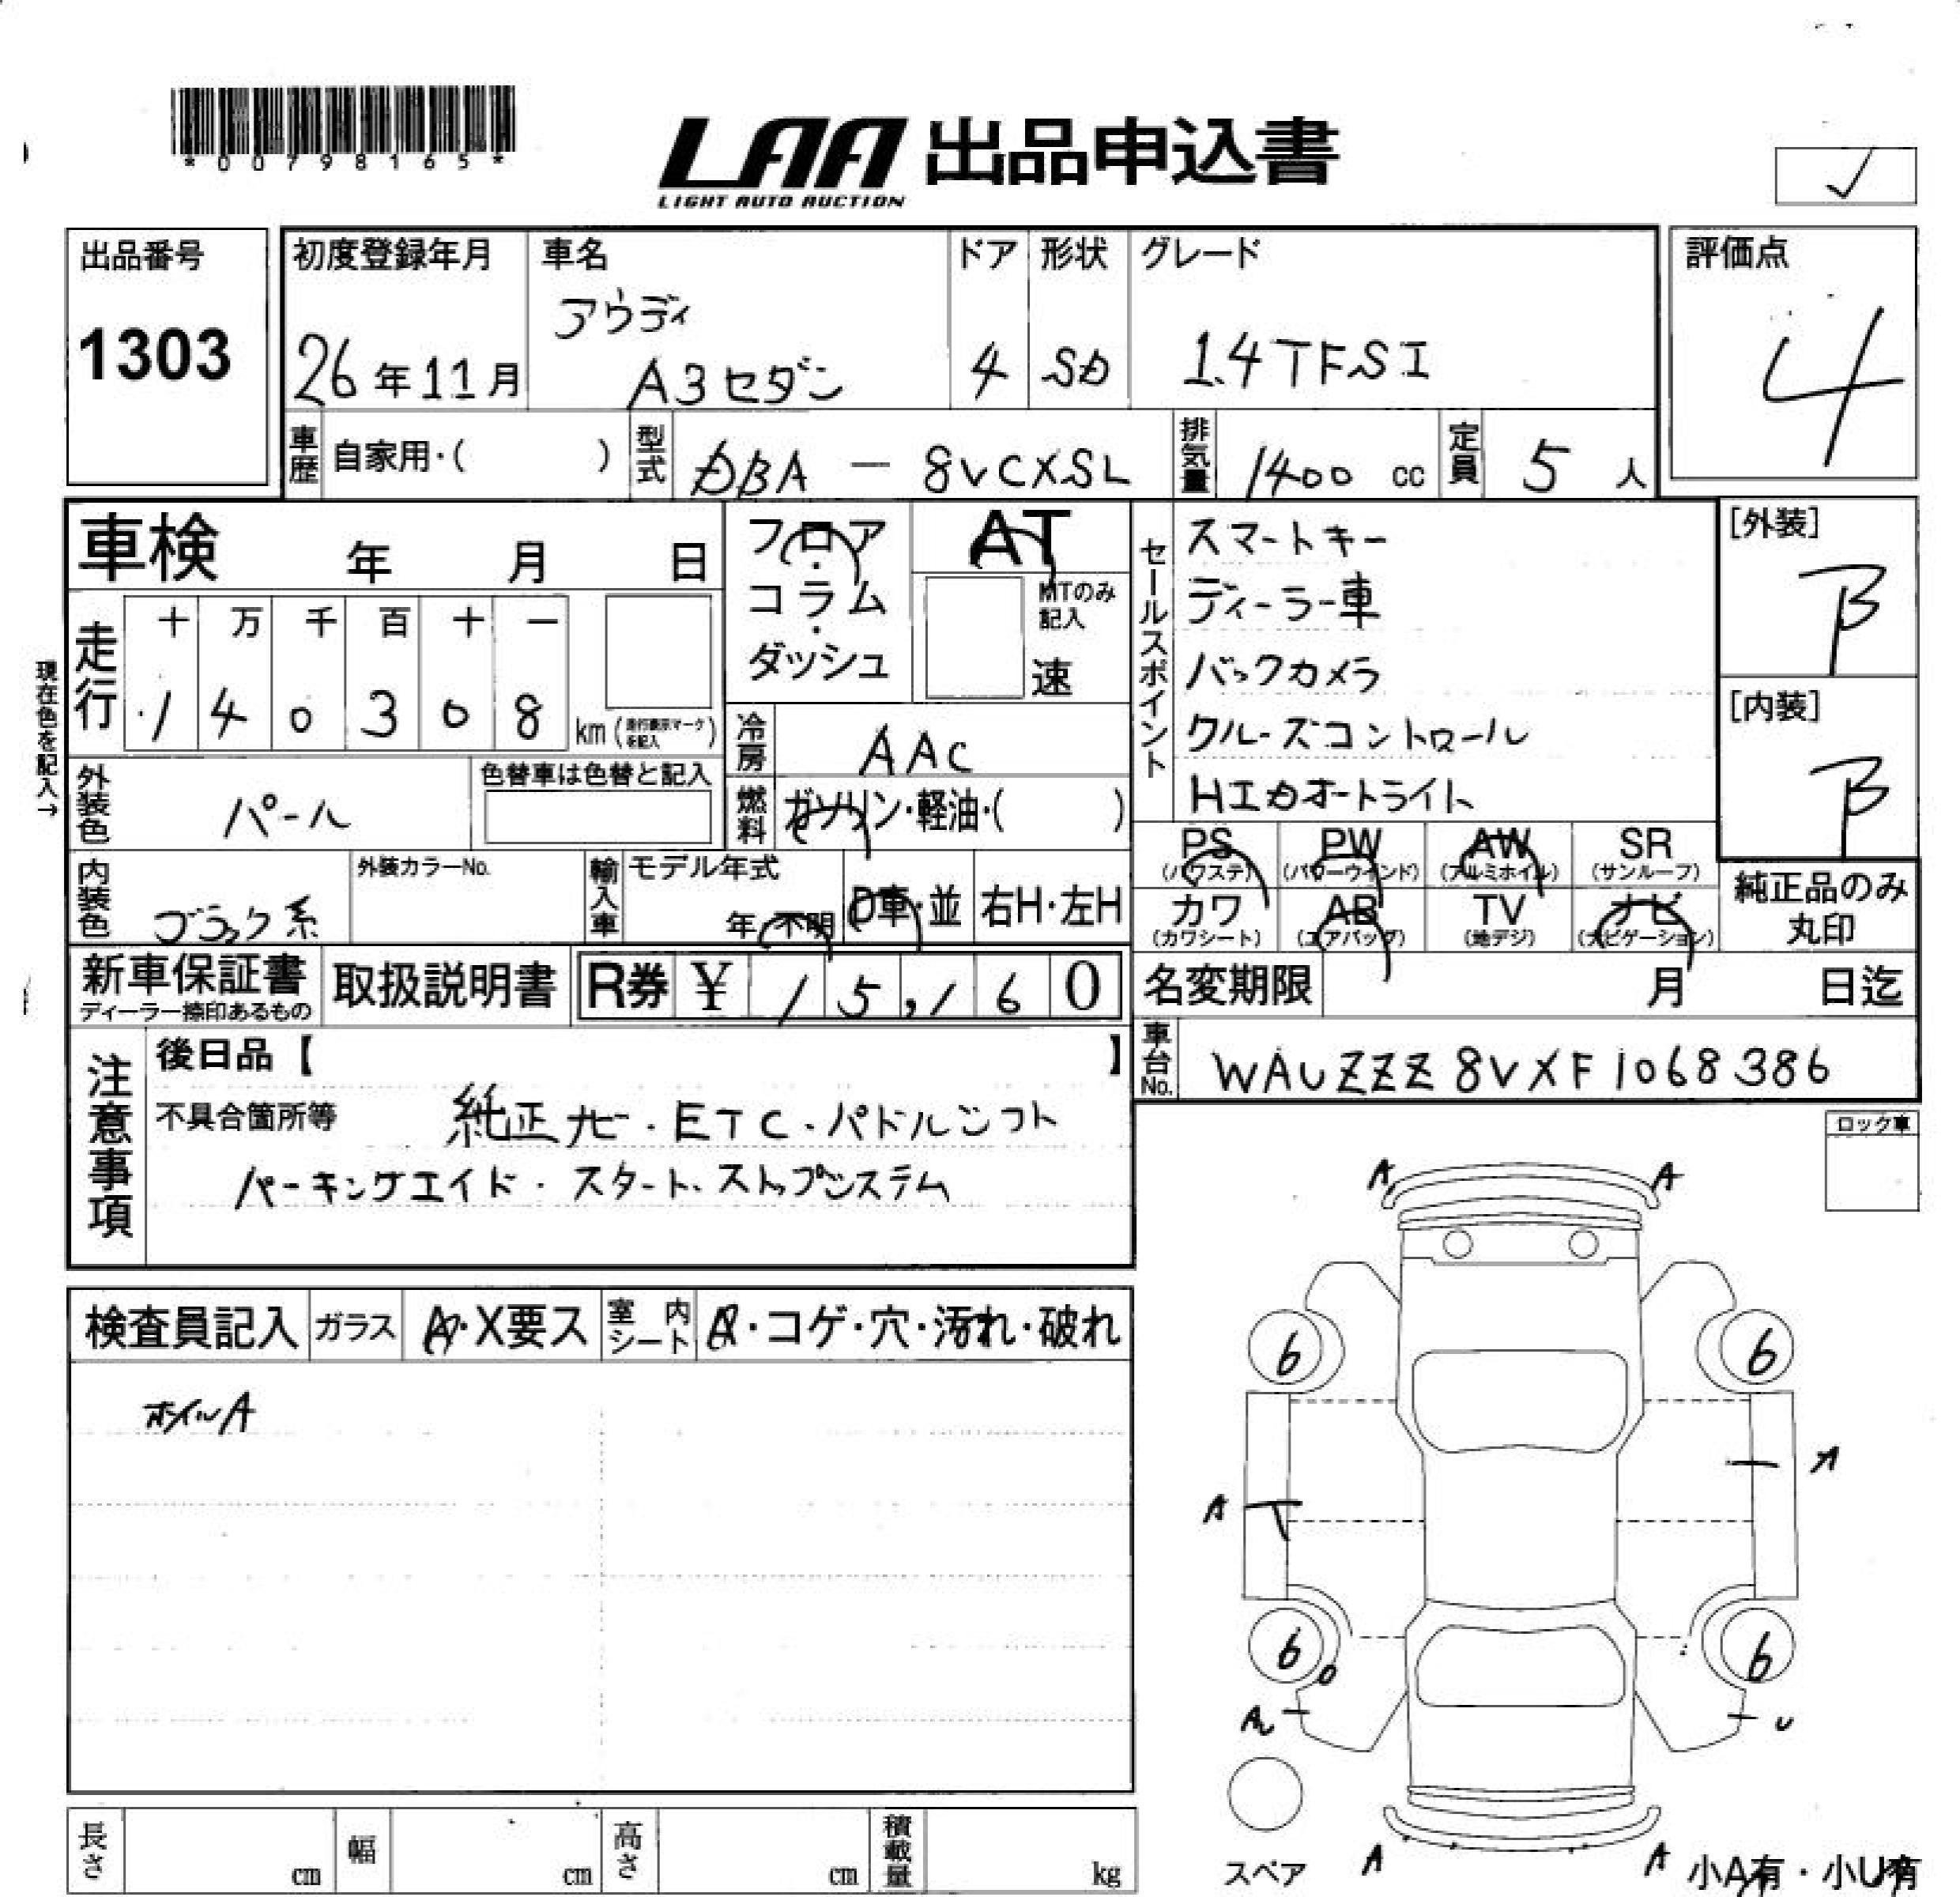 *00798165*
LAA 出品申込書
LIGHT AUTO AUCTION
✓
出品番号
1303
初度登録年月
26年11月
車名
アウディ
A3セダン
ドア
4
形状
SD
グレード
1.4TFSI
評価点
4
車歴 自家用・( )
型式 DBA — 8VCXSL
排気量 1400 cc
定員 5 人
車検 年 月 日
走行
十 万 千 百 十 一
1 4 0 3 0 8
km (走行表示マークを記入)
現在色を記入→
外装色 パール
色替車は色替と記入
内装色 ブラック系
外装カラーNo.
フロア・コラム・ダッシュ
AT
MTのみ記入
速
冷房 AAC
燃料 ガソリン・軽油・( )
輸入車
モデル年式
年・不明
D車・並
右H・左H
セールスポイント
スマートキー
ディーラー車
バックカメラ
クルーズコントロール
HIDオートライト
[外装]
B
[内装]
B
PS (パワステ)
PW (パワーウインド)
AW (アルミホイル)
SR (サンルーフ)
カワ (カワシート)
AB (エアバッグ)
TV (地デジ)
ナビ (ナビゲーション)
純正品のみ丸印
新車保証書
ディーラー捺印あるもの
取扱説明書
R券 ¥ 15,160
名変期限 月 日迄
車台No. WAUZZZ8VXF1068386
注意事項
後日品【 】
不具合箇所等 純正ナビ・ETC・パドルシフト
パーキングエイド・スタートストップシステム
ロック車
検査員記入
ガラス A・X要ス
室内シート A・コゲ・穴・汚れ・破れ
ホイルA
A A
6 6
A
A
6 6
U
A A
スペア
小A有・小U有
長さ cm
幅 cm
高さ cm
積載量 kg